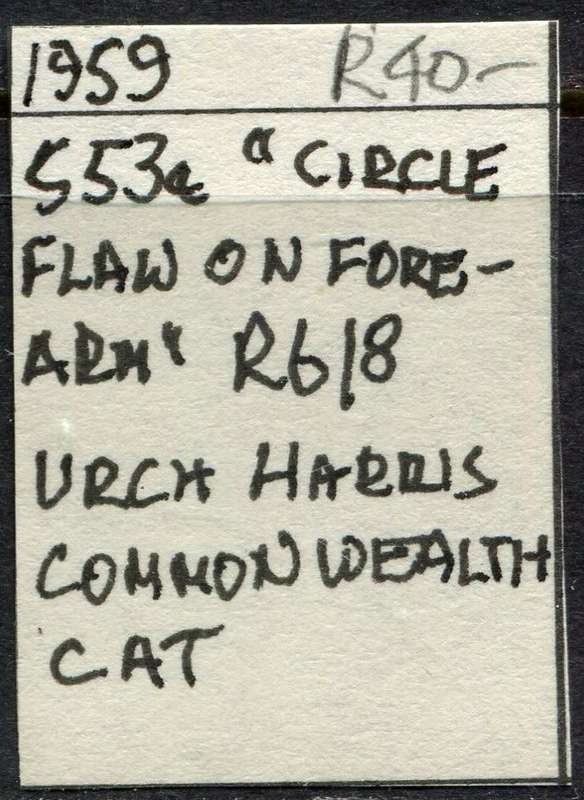 1959 R40-
S53a "CIRCLE
FLAW ON FORE-
ARM" R6/8
URCH HARRIS
COMMONWEALTH
CAT